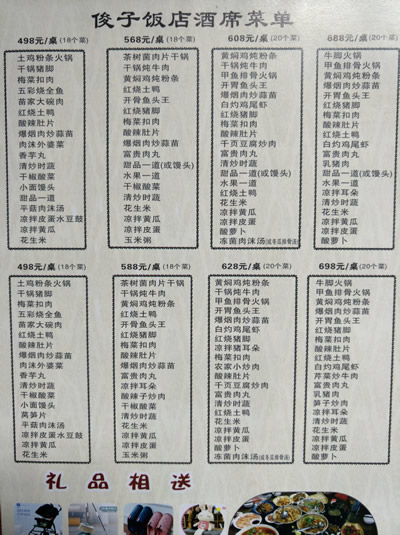 俊子饭店酒席菜单
498元/桌(18个菜)
土鸡粉条火锅
干锅猪脚
梅菜扣肉
五彩烧全鱼
苗家大碗肉
红烧土鸭
酸辣肚片
爆烟肉炒蒜苗
肉沫外婆菜
香芋丸
清炒时蔬
干椒酸菜
小面馒头
甜品一道
平菇肉沫汤
凉拌皮蛋水豆鼓
凉拌黄瓜
花生米
568元/桌(18个菜)
茶树菌肉片干锅
干锅炖牛肉
黄焖鸡炖粉条
红烧土鸭
开骨鱼头王
梅菜扣肉
酸辣肚片
爆烟肉炒蒜苗
富贵肉丸
清炒时蔬
甜品一道(或馒头)
水果一道
干椒酸菜
清炒时蔬
花生米
凉拌黄瓜
凉拌皮蛋
玉米粥
608元/桌(20个菜)
黄焖鸡炖粉条
干锅炖牛肉
甲鱼排骨火锅
开胃鱼头王
爆烟肉炒蒜苗
白灼鸡尾虾
红烧土鸭
梅菜扣肉
酸辣肚片
千页豆腐炒肉
富贵肉丸
清炒时蔬
甜品一道(或馒头)
水果一道
清炒时蔬
花生米
凉拌黄瓜
凉拌皮蛋
酸萝卜
冻菌肉沫汤(或冬瓜排骨汤)
688元/桌(20个菜)
牛脚火锅
甲鱼排骨火锅
黄焖鸡炖粉条
开胃鱼头王
爆烟肉炒蒜苗
白灼鸡尾虾
红烧土鸭
梅菜扣肉
酸辣肚片
富贵肉丸
乳猪肉
清炒时蔬
甜品一道(或馒头)
水果一道
清炒时蔬
花生米
凉拌黄瓜
凉拌皮蛋
酸萝卜
498元/桌(18个菜)
土鸡粉条火锅
干锅猪脚
梅菜扣肉
五彩烧全鱼
苗家大碗肉
红烧土鸭
酸辣肚片
爆烟肉炒蒜苗
肉沫外婆菜
香芋丸
清炒时蔬
干椒酸菜
小面馒头
莴笋片
平菇肉沫汤
凉拌皮蛋水豆鼓
凉拌黄瓜
花生米
588元/桌(18个菜)
茶树菌肉片干锅
干锅炖牛肉
黄焖鸡炖粉条
红烧土鸭
开骨鱼头王
梅菜扣肉
酸辣肚片
爆烟肉炒蒜苗
富贵肉丸
凉拌耳朵
清炒时蔬
干椒酸菜
酸辣子炒肉
花生米
凉拌黄瓜
凉拌皮蛋
玉米粥
628元/桌(20个菜)
黄焖鸡炖粉条
干锅炖牛肉
甲鱼排骨火锅
开胃鱼头王
爆烟肉炒蒜苗
白灼鸡尾虾
凉拌猪耳朵
梅菜扣肉
酸辣肚片
农家小炒肉
千页豆腐炒肉
富贵肉丸
清炒时蔬
红烧土鸭
清炒时蔬
花生米
凉拌黄瓜
凉拌皮蛋
酸萝卜
冻菌肉沫汤(或冬瓜排骨汤)
698元/桌(20个菜)
牛脚火锅
甲鱼排骨火锅
黄焖鸡炖粉条
开胃鱼头王
爆烟肉炒蒜苗
红烧土鸭
梅菜扣肉
酸辣肚片
白灼鸡尾虾
芹菜炒牛肉
富贵肉丸
乳猪肉
笋子炒肉
凉拌耳朵
清炒时蔬
花生米
凉拌黄瓜
凉拌皮蛋
酸萝卜
礼品相送